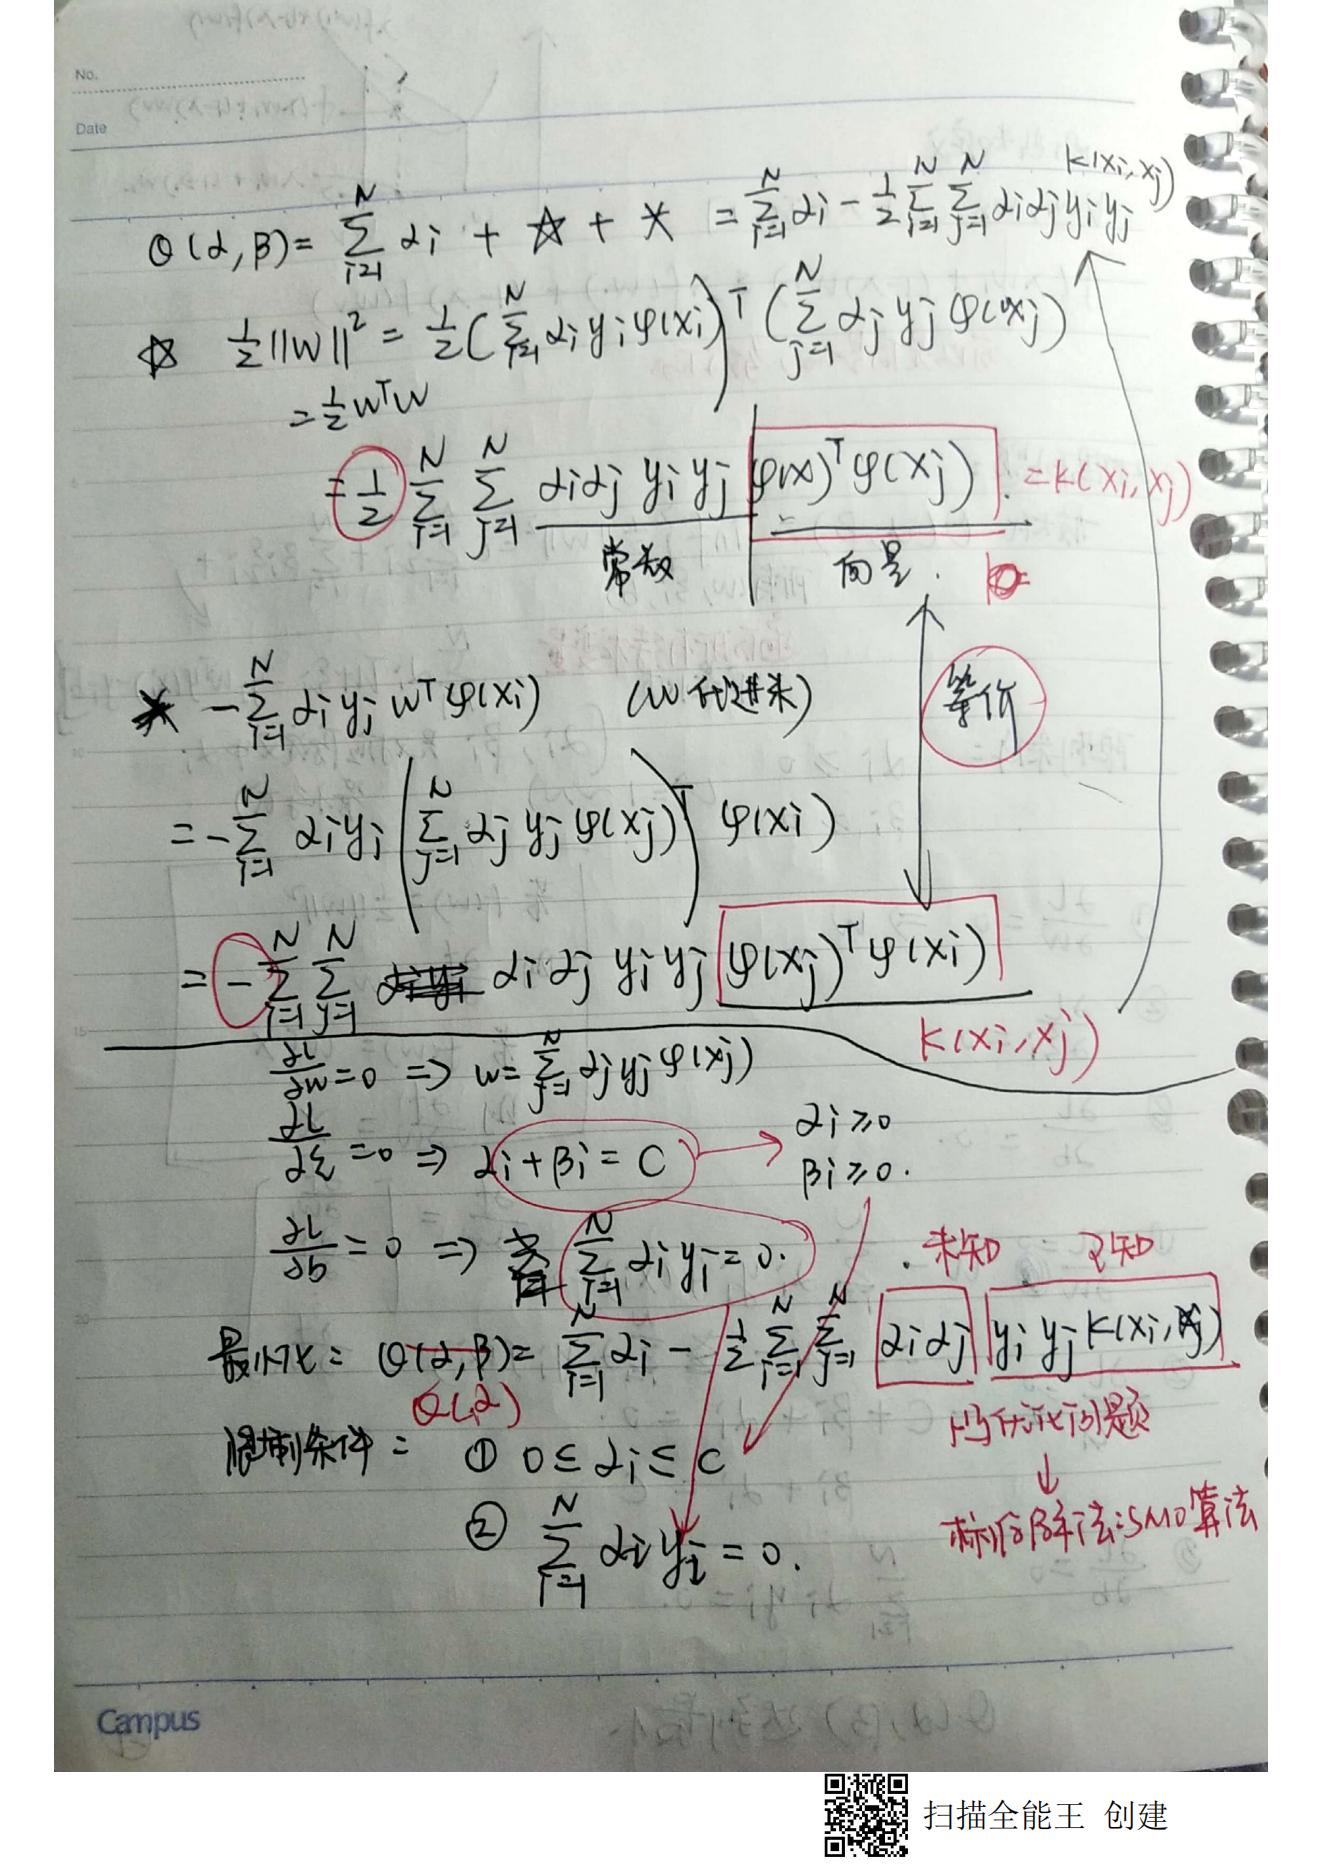 No.
Date
θ(α,β)= Σ_{i=1}^{N} αi + ☆ + * = Σ_{i=1}^{N} αi - 1/2 Σ_{i=1}^{N} Σ_{j=1}^{N} αiαj yiyj K(xi,xj)
☆ 1/2||W||² = 1/2(Σ_{i=1}^{N} αi yi φ(xi))^T (Σ_{j=1}^{N} αj yj φ(xj))
= 1/2 W^T W
= 1/2 Σ_{i=1}^{N} Σ_{j=1}^{N} αiαj yi yj φ(x)^T φ(xj). = K(xi,xj)
常数 向量.
等价
* - Σ_{i=1}^{N} αi yi W^T φ(xi) (W代进来)
= - Σ_{i=1}^{N} αi yi (Σ_{j=1}^{N} αj yj φ(xj))^T φ(xi)
= - Σ_{i=1}^{N} Σ_{j=1}^{N} αi αj yi yj φ(xj)^T φ(xi)
K(xi,xj)
∂L/∂w=0 => w= Σ_{j=1}^{N} αj yj φ(xj)
∂L/∂ξ=0 => αi+βi = C → αi≥0
βi≥0.
∂L/∂b=0 => Σ_{i=1}^{N} αi yi=0.
未知 已知
最小化: θ(α,β)= Σ_{i=1}^{N} αi - 1/2 Σ_{i=1}^{N} Σ_{j=1}^{N} αiαj yi yj K(xi,xj)
θ(α)
凸优化问题
限制条件: ① 0≤αi≤C
↓
② Σ_{i=1}^{N} αi yi = 0.
标准解法:SMO算法
Campus
扫描全能王 创建